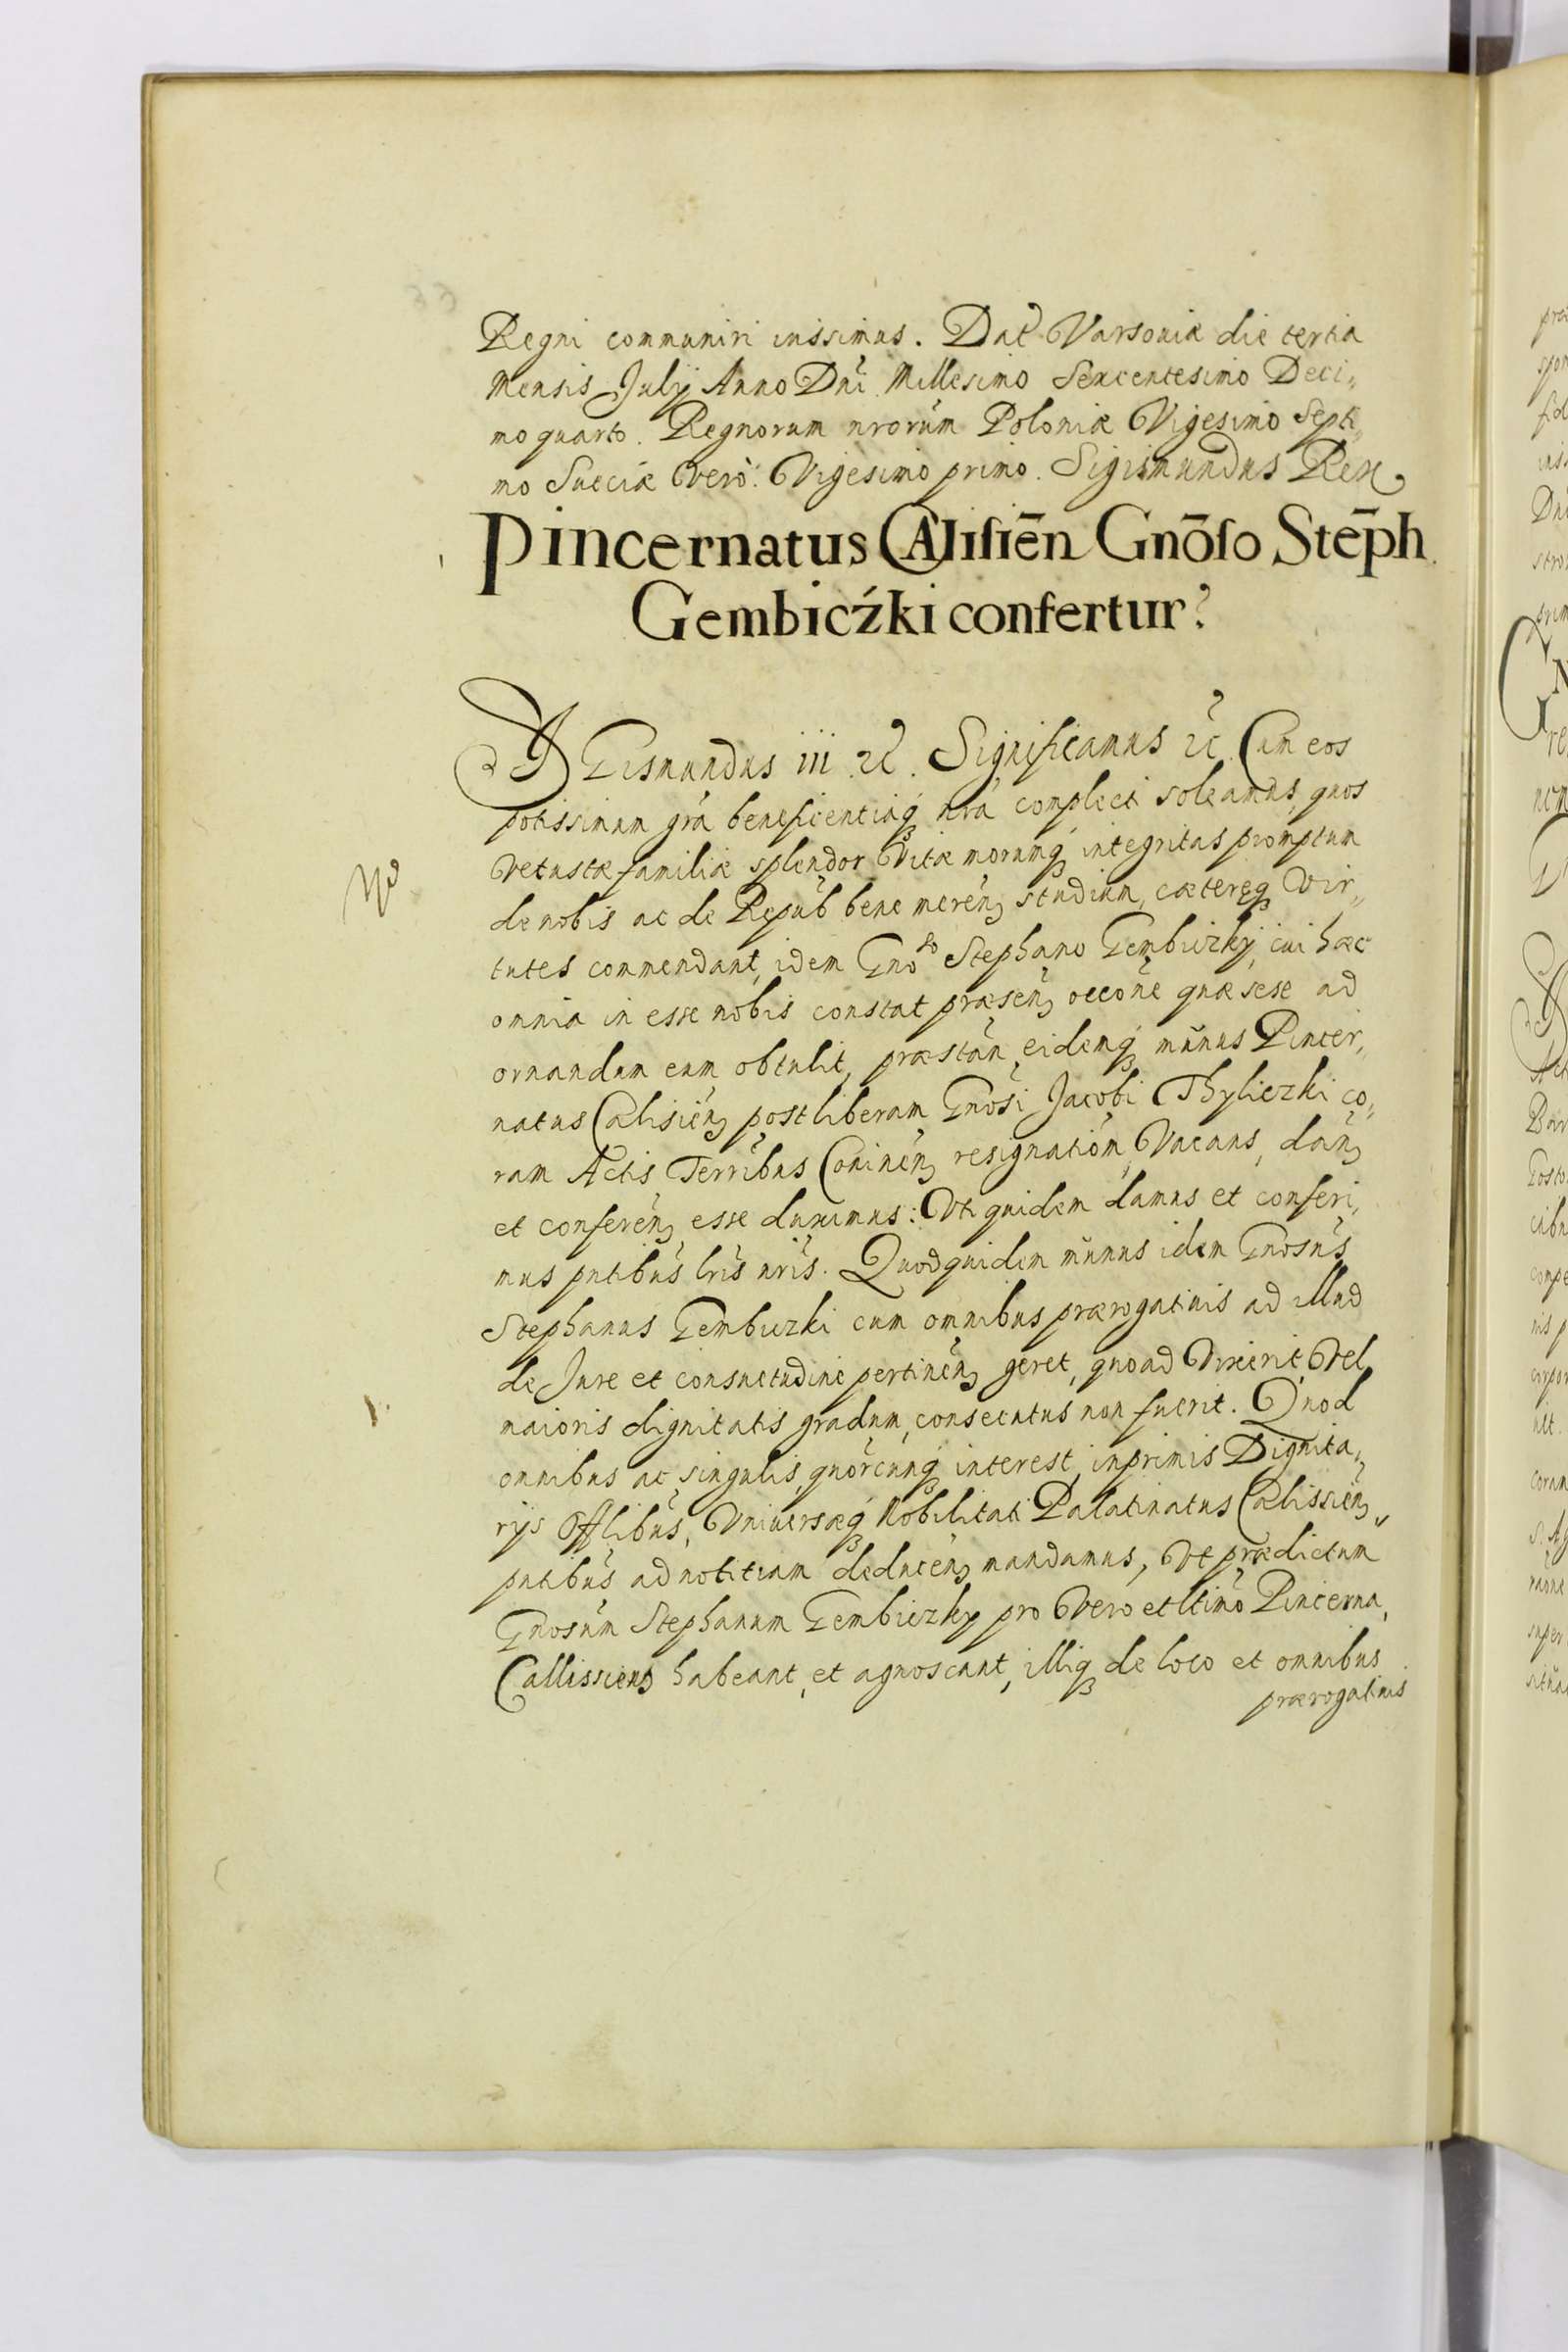 Regni communiri iussimus. Dat Varsouiæ die tertia
Mensis July Anno Dni Millesimo Sexcentesimo Deci„
mo quarto. Regnorum nrorum Poloniæ Vigesimo Septi„
mo Sueciæ vero Vigesimo primo. Sigismundus Rex
Pincernatus CAlisien̄ Gnōso Stēph
Gembicźki confertur.
SIGismundus iii etc. Significamus etc. Cum eos
potissimum gra beneficentiaq nra complecti soleamus, quos
vetustæ familiæ splendor Vitæ morumq integritas promptum
de nobis ac de Repub bene meren studium, cæteręq Vir„
tutes commendant, idem Gnoso Stephano Gembiczky, cui hæc
omnia in esse nobis constat præsen occone quæ sese ad
ornandum eum obtulit, præstan eidemq munus Pincer„
natus Calisien post liberam Gnosi Jacobi Thyliczki co„
ram Actis Terribus Coninen resignation Vacans, dan
et conferen esse duximus: Vti quidem damus et conferi„
mus pntibus lris nris. Quod quidem munus idem Gnosus
Stephanus Gembiczki cum omnibus prærogatiuis ad illud
de Jure et consuetudine pertinen geret, quoad Vixerit, Vel
maioris dignitatis gradum, consecutus non fuerit. Quod
omnibus ac singulis, quorcunq interest, inprimis Dignita„
rys Offlibus, Vniuersæq Nobilitati Palatinatus Calissien„
pntibus ad notitiam deducen mandamus, Vt prædictum
Gnosum Stephanum Gembiczky pro Vero et ltimo Pincerna,
Callissien habeant, et agnoscant, illiq de loco et omnibus
prærogatiuis